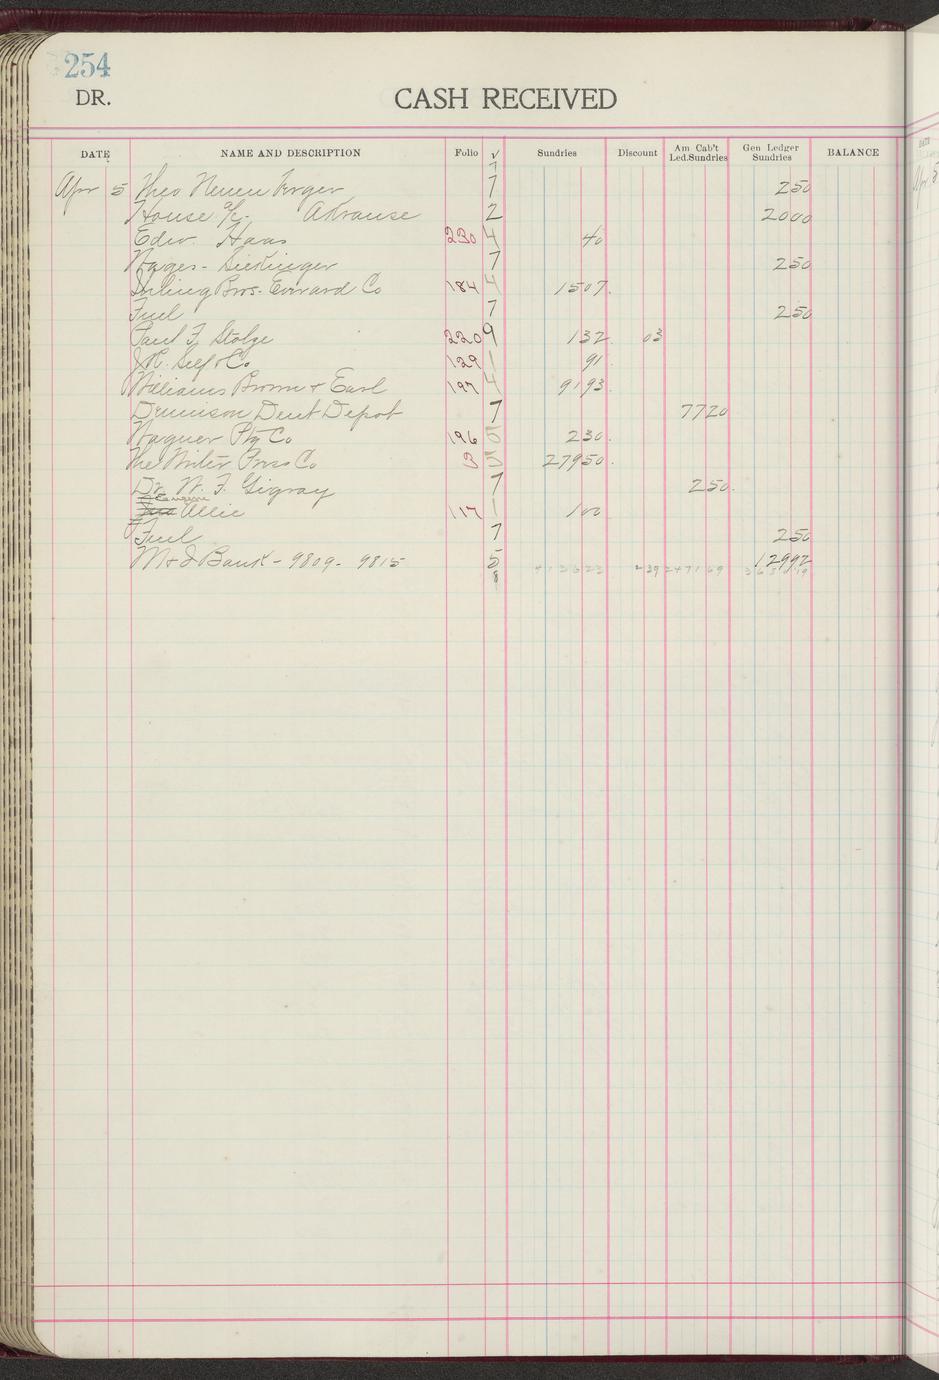 254
DR. CASH RECEIVED
DATE NAME AND DESCRIPTION Folio √ Sundries Discount Am Cab't Led.Sundries Gen Ledger Sundries BALANCE
7
Apr 5 Theo 7 250
House a/c. A Krause 2 2000
Edw. Haas 230 4 40
Wages - 7 250
Bros. Everard Co 184 4 1507.
Fuel 7 250
Paul F. Stolze 220 9 132 03
J.R. Self & Co. 129 1 91
Williams Brown & Earl 197 4 9193.
Dennison Dent Depot 7 7720
Wagner Ptg Co 196 5 230.
The Writer Press Co 3 5 27950.
Dr. W. F. Gigray 7 250.
Eugene
Allie 117 1 100
Fuel 7 250
M & I Bank - 9809 - 9815 5 12992
8